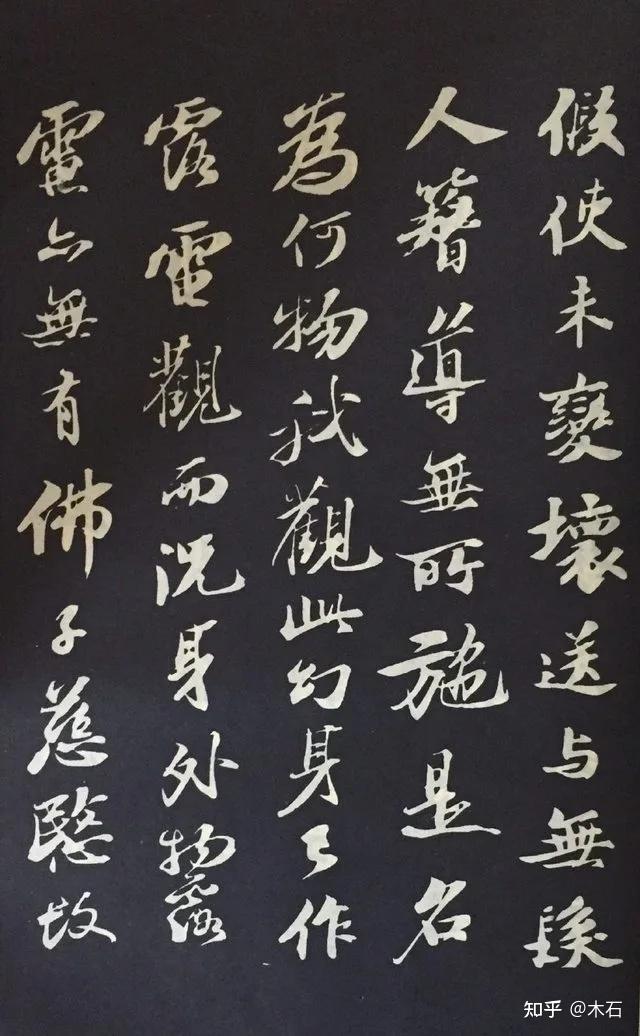 假使未變壞送与無髮
人簪導無所施是名
為何物我觀此幻身已作
露電觀而況身外物露
電亦無有佛子慈愍故
知乎 @木石